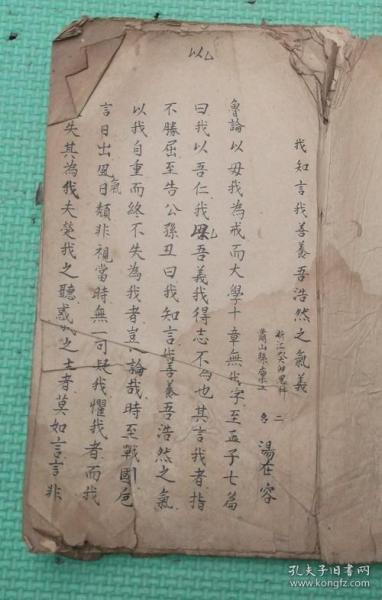 以
我知言我善養吾浩然之氣義
浙江
蕭山縣
二名 湯在容
魯論以毋我為戒而大學十章無我字至孟子七篇
曰我以吾仁我以吾義我得志不為也其言我者指
不勝屈至告公孫丑曰我知言我善養吾浩然之氣
以我自重而終不失為我者豈論哉時至戰國危
言日出氣日頹非視當時無一可疑我懼我者而我
失其為我夫熒我之聽惑我之士者莫如言言非
孔夫子旧书网
www.kongfz.com